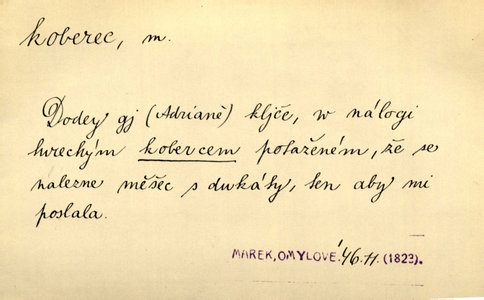 koberec, m.
Dodey gj (Adrianě) kljče, w nálogi
tureckým kobercem potaženém, že se
nalezne měšec s dukáty, ten aby mi
poslala.
MAREK, OMYLOVÉ. 46. 11. (1823).